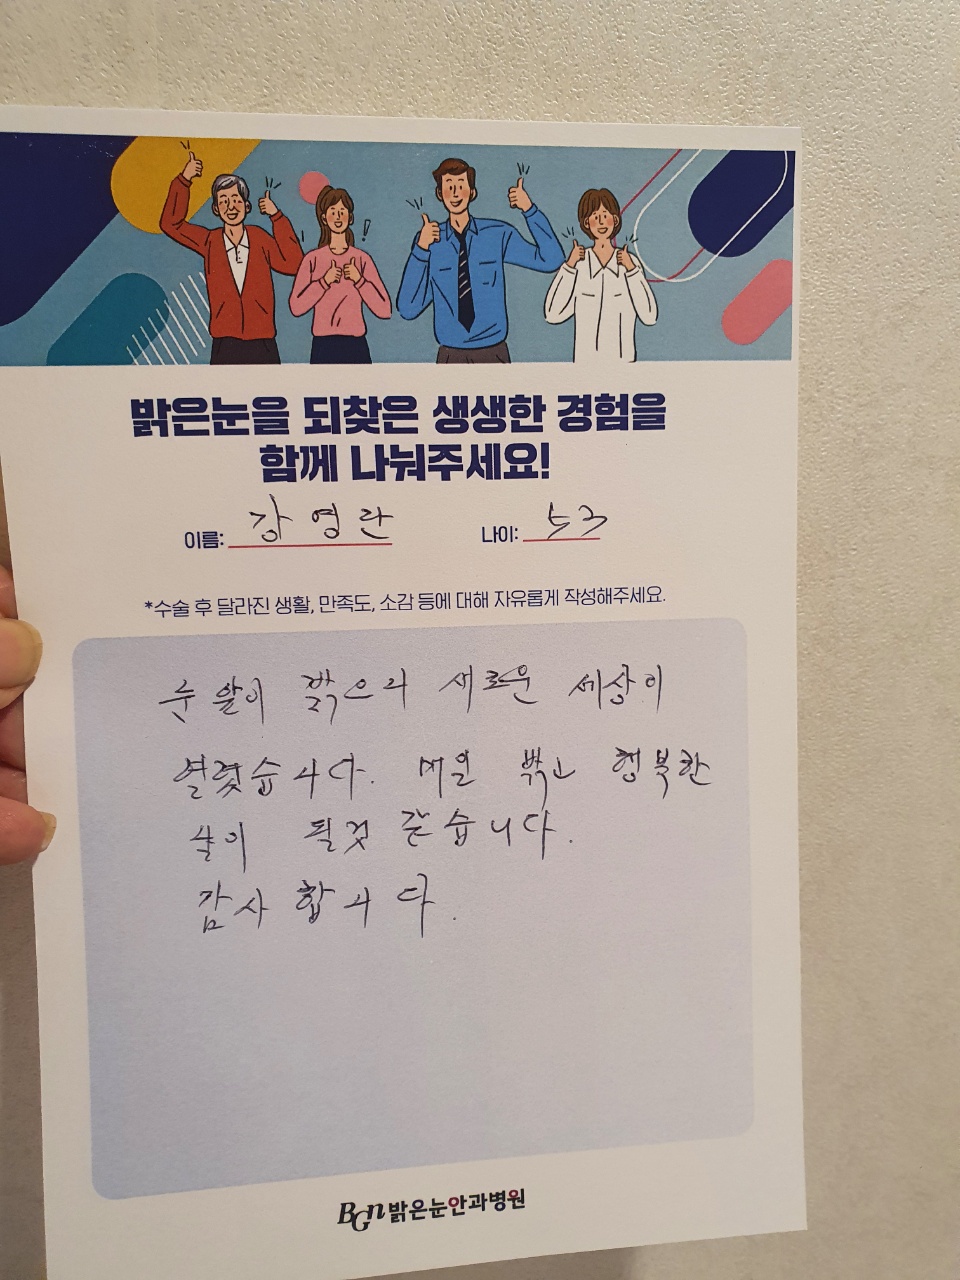 밝은눈을 되찾은 생생한 경험을
함께 나눠주세요!
이름: 강영란 나이: 53
*수술 후 달라진 생활, 만족도, 소감 등에 대해 자유롭게 작성해주세요.
눈 앞이 밝으리 새로운 세상이
열렸습니다. 매일 밝고 행복한
삶이 될것 같습니다.
감사합니다.
BGn밝은눈안과병원